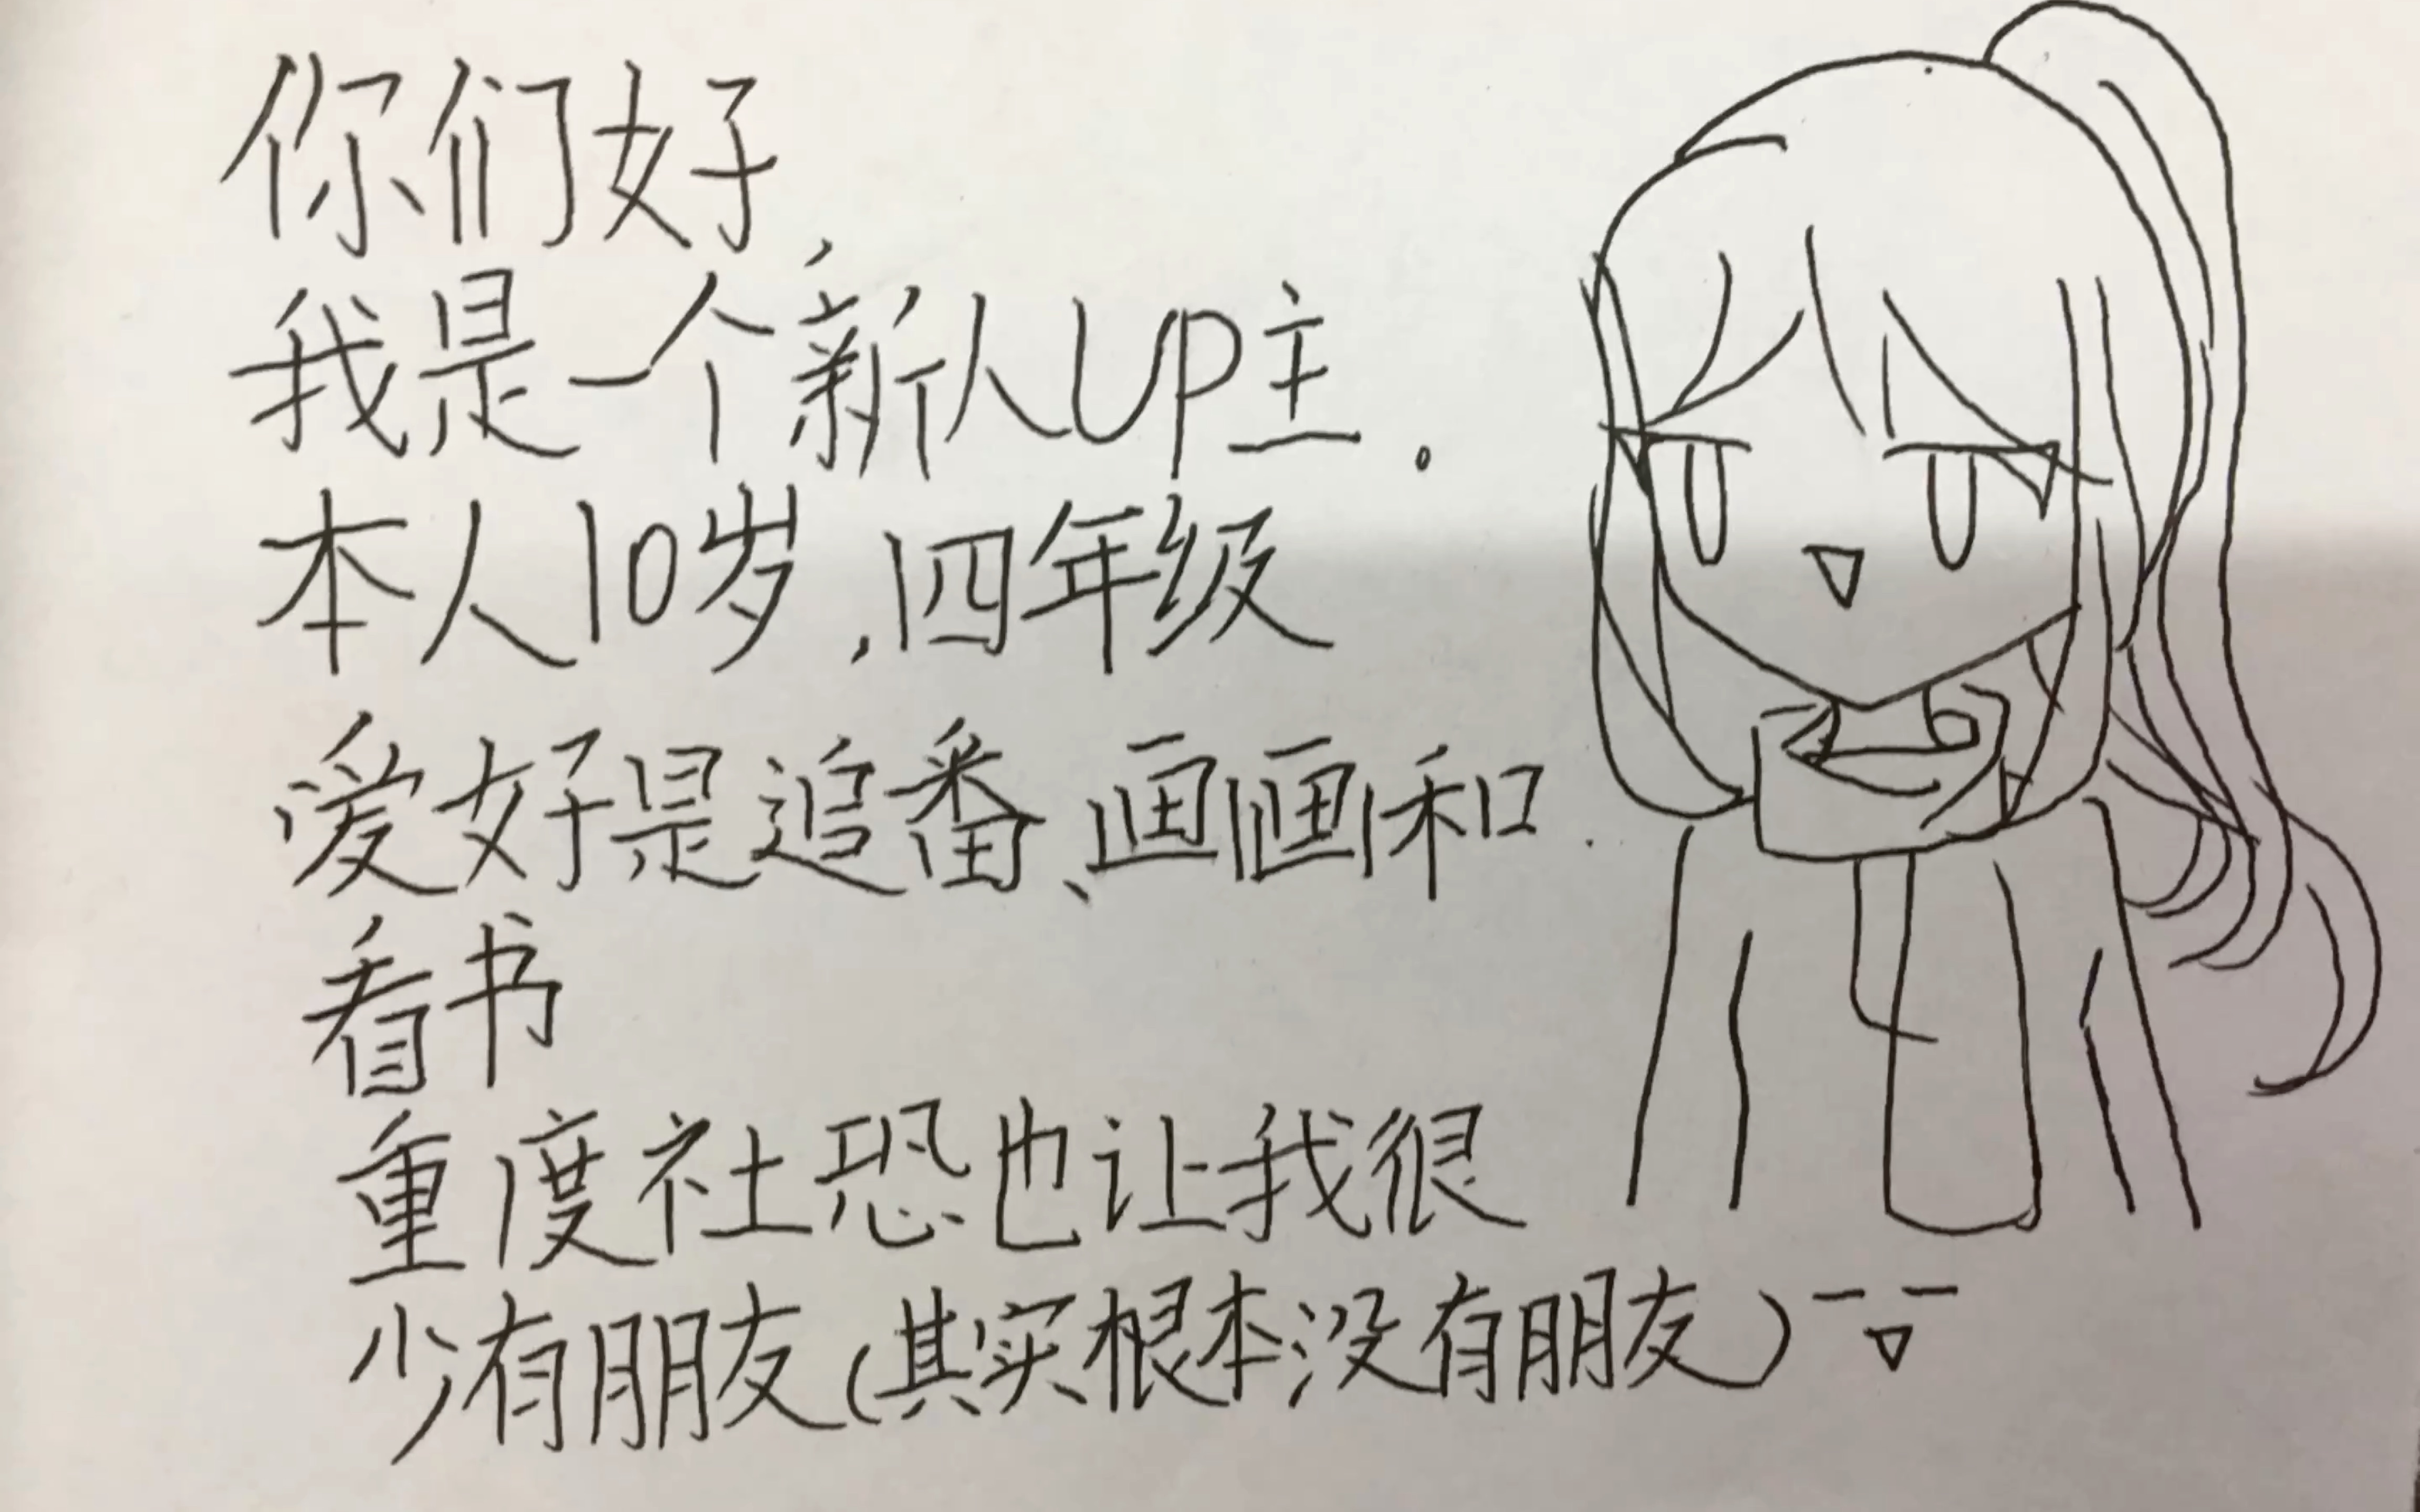 你们好,
我是一个新人UP主.
本人10岁,四年级
爱好是追番、画画和
看书
重度社恐也让我很
少有朋友(其实根本没有朋友)